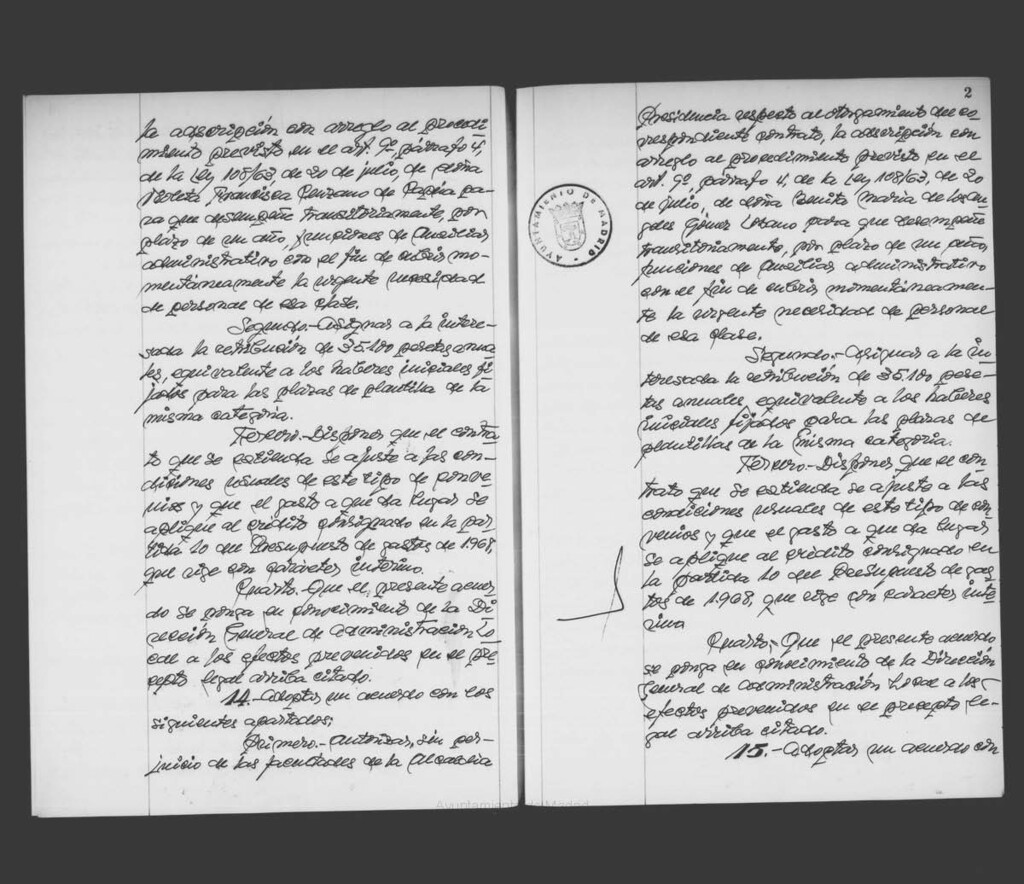 la adscripción con arreglo al procedi
miento previsto en el art. 9º, párrafo 4,
de la Ley 108/63, de 20 de julio, de doña
Francisca de pa
ra que desempeñe transitoriamente, por
plazo de un año, funciones de Auxiliar
administrativo con el fin de cubrir mo-
mentáneamente la urgente necesidad
de personal de esa clase.
Segundo.- Asignar a la intere-
sada la retribución de 35.100 pesetas anua
les, equivalente a los haberes iniciales fi
jados para las plazas de plantilla de la
misma categoría.
Tercero.- Disponer que el contra
to que se extienda se ajuste a las con-
diciones usuales de este tipo de conve-
nios y que el gasto a que da lugar se
aplique al crédito consignado en la par
tida 10 del Presupuesto de gastos de 1.968,
que rige con carácter interino.
Quarto.- Que el presente acuer-
do se ponga en conocimiento de la Di
rección General de Administración Lo
cal a los efectos prevenidos en el pre
cepto legal arriba citado.
14.- Adoptar un acuerdo con los
siguientes apartados:
Primero.- Autorizar, sin per-
juicio de las facultades de la Alcaldía
2
Presidencia respecto al otorgamiento del co
rrespondiente contrato, la adscripción con
arreglo al procedimiento previsto en el
art. 9º, párrafo 4, de la Ley 108/63, de 20
de julio, de doña Benita María de los án
geles Gómez Lozano para que desempeñe
transitoriamente, por plazo de un año,
funciones de Auxiliar administrativo
con el fin de cubrir momentáneamen-
te la urgente necesidad de personal
de esa clase.
Segundo.- Asignar a la in
teresada la retribución de 35.100 pese-
tas anuales, equivalente a los haberes
iniciales fijados para las plazas de
plantillas de la misma categoría.
Tercero.- Disponer que el con
trato que se extienda se ajuste a las
condiciones usuales de este tipo de con
venios y que el gasto a que da lugar
se aplique al crédito consignado en
la partida 10 del Presupuesto de gas
tos de 1.968, que rige con carácter inte
rino.
Quarto.- Que el presente acuerdo
se ponga en conocimiento de la Dirección
General de Administración Local a los
efectos prevenidos en el precepto le-
gal arriba citado.
15.- Adoptar un acuerdo con
AYUNTAMIENTO DE MADRID
Ayuntamiento de Madrid